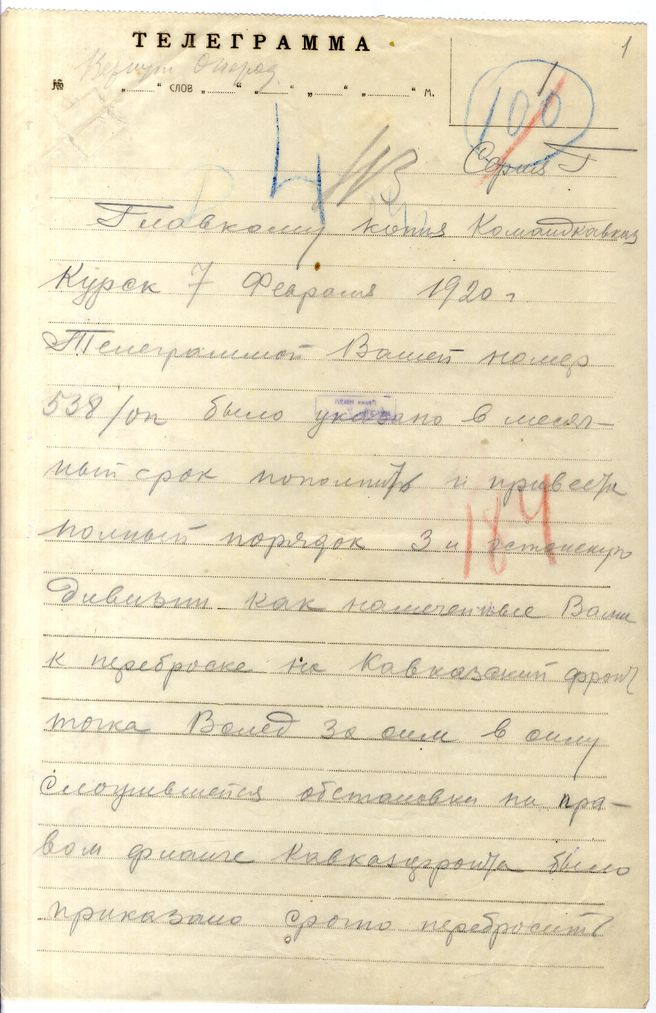 1
ТЕЛЕГРАММА
№ „ “ слов „ “ „ “ „ “ „ “ м.
100
Серия Г
Главкому копия Командкавказ
Курск 7 Февраля 1920 г
Телеграммой Вашей номер
538/оп было указано в месяч-
ный срок пополнить и привести
полный порядок 3 и эстонскую
184
дивизии как намеченные Вами
к переброске на Кавказский фронт
точка Вслед за сим в силу
сложившейся обстановки на пра-
вом фланге Кавказфронта было
приказано срочно перебросить